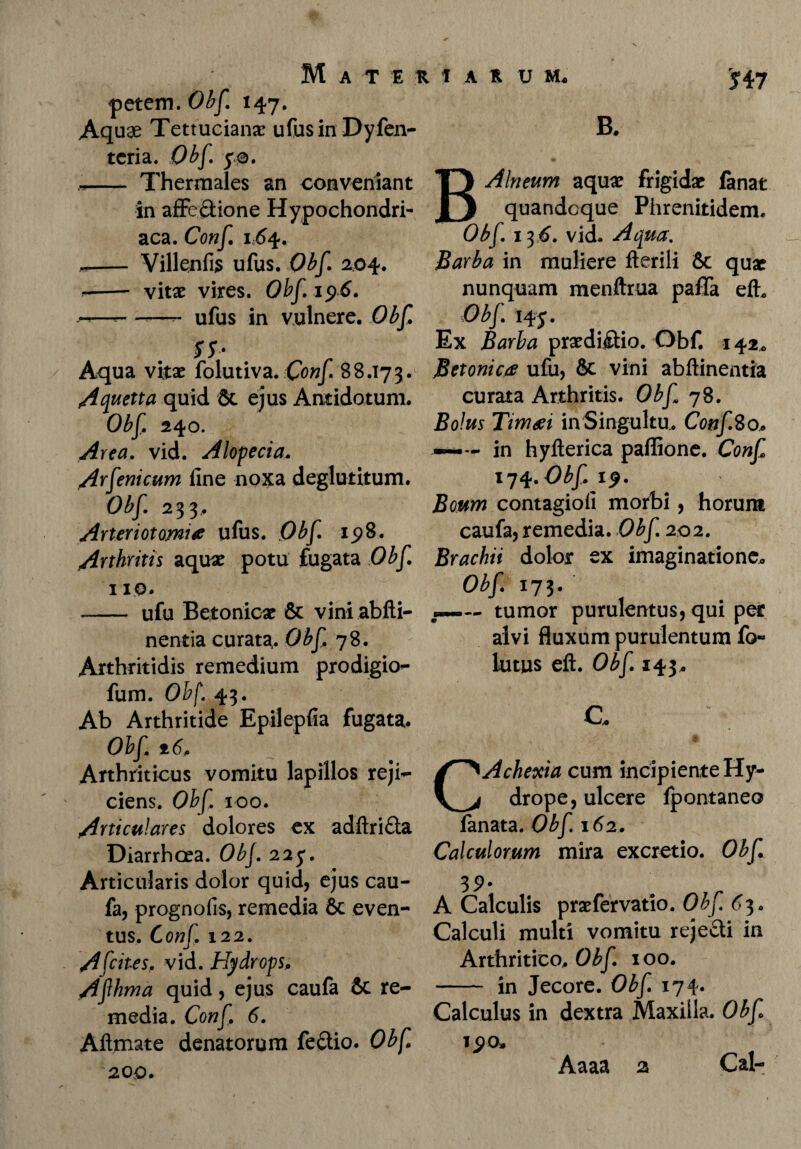 MATERIARUM. 547
petem. Obſ. 147.
Aquæ Tettucianæ uſus in Dyſen-
teria. Obſ. 50.
—— Thermales an conveniant
in affectione Hypochondri-
aca. Conſ. 164.
—— Villenſis uſus. Obſ. 204.
—— vitæ vires. Obſ. 196.
—— —— uſus in vulnere. Obſ.
55.
Aqua vitæ ſolutiva. Conſ. 88.173.
Aquetta quid & ejus Antidotum.
Obſ. 240.
Area. vid. Alopecia.
Arſenicum ſine noxa deglutitum.
Obſ. 233.
Arteriotomiæ uſus. Obſ. 198.
Arthritis aquæ potu fugata Obſ.
110.
—— uſu Betonicæ & vini abſti-
nentia curata. Obſ. 78.
Arthritidis remedium prodigio-
ſum. Obſ. 43.
Ab Arthritide Epilepſia fugata.
Obſ. 26.
Arthriticus vomitu lapillos reji-
ciens. Obſ. 100.
Articulares dolores ex adſtricta
Diarrhœa. Obſ. 225.
Articularis dolor quid, ejus cau-
ſa, prognoſis, remedia & even-
tus. Conſ. 122.
Aſcites. vid. Hydrops.
Aſthma quid, ejus cauſa & re-
media. Conſ. 6.
Aſtmate denatorum ſectio. Obſ.
200.
B.
BAlneum aquæ frigidæ ſanat
quandoque Phrenitidem.
Obſ. 136. vid. Aqua.
Barba in muliere ſterili & quæ
nunquam menſtrua paſſa eſt.
Obſ. 145.
Ex Barba prædictio. Obſ. 142.
Betonicæ uſu, & vini abſtinentia
curata Arthritis. Obſ. 78.
Bolus Timæi in Singultu. Conſ. 80.
—— in hyſterica paſſione. Conſ.
174. Obſ. 19.
Boum contagioſi morbi, horum
cauſa, remedia. Obſ. 202.
Brachii dolor ex imaginatione.
Obſ. 173.
—— tumor purulentus, qui per
alvi fluxum purulentum ſo-
lutus eſt. Obſ. 143.
C.
CAchexia cum incipiente Hy-
drope, ulcere ſpontaneo
ſanata. Obſ. 162.
Calculorum mira excretio. Obſ.
39.
A Calculis præſervatio. Obſ. 63.
Calculi multi vomitu rejecti in
Arthritico. Obſ. 100.
—— in Jecore. Obſ. 174.
Calculus in dextra Maxilla. Obſ.
190.
Aaaa 2 Cal-